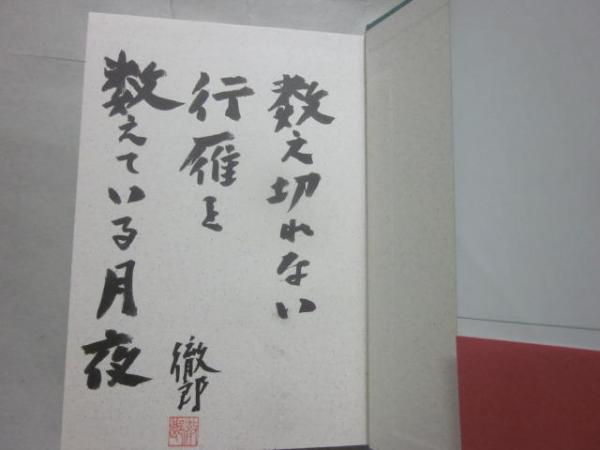 数え切れない
行雁を
数えている月夜
徹郎